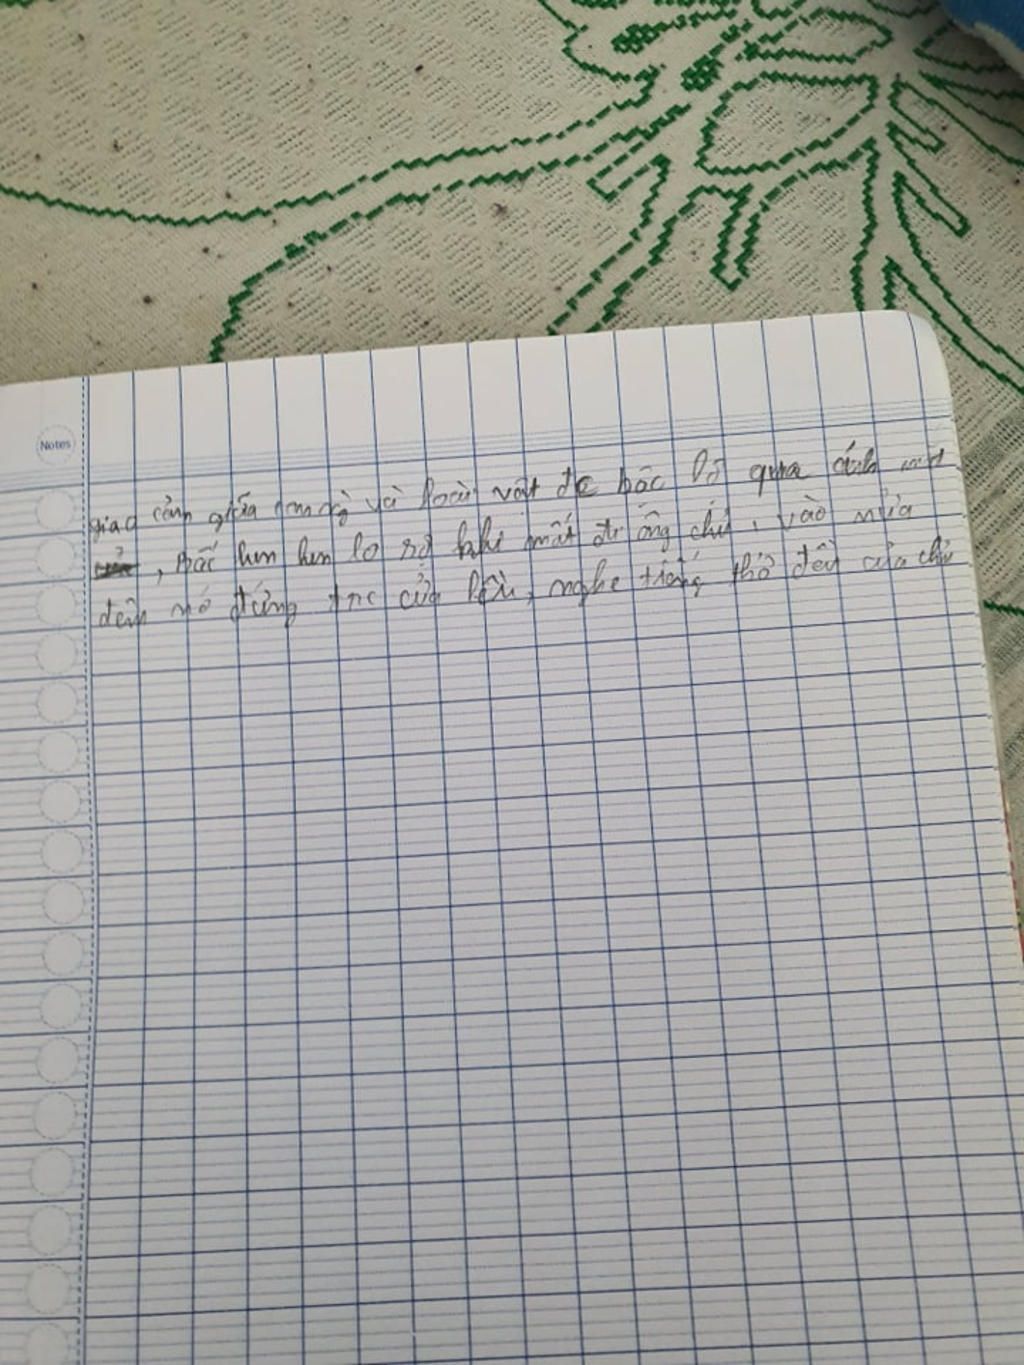 Notes
giao cảm giữa con ng và loài vật đc bộc lộ qua cách
, Bấc luôn luôn lo sợ khi mất đi ông chủ, vào nửa
đêm nó đứng trc cửa lều, nghe tiếng thở đều của chủ